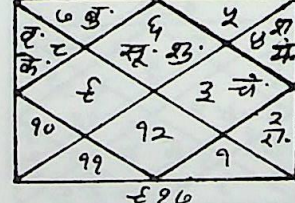 ७ बु. ६ ५
वृ. ८ के. सू. शु. ४ श. मं.
९ ३ चं.
१० १२ २ रा.
११ १